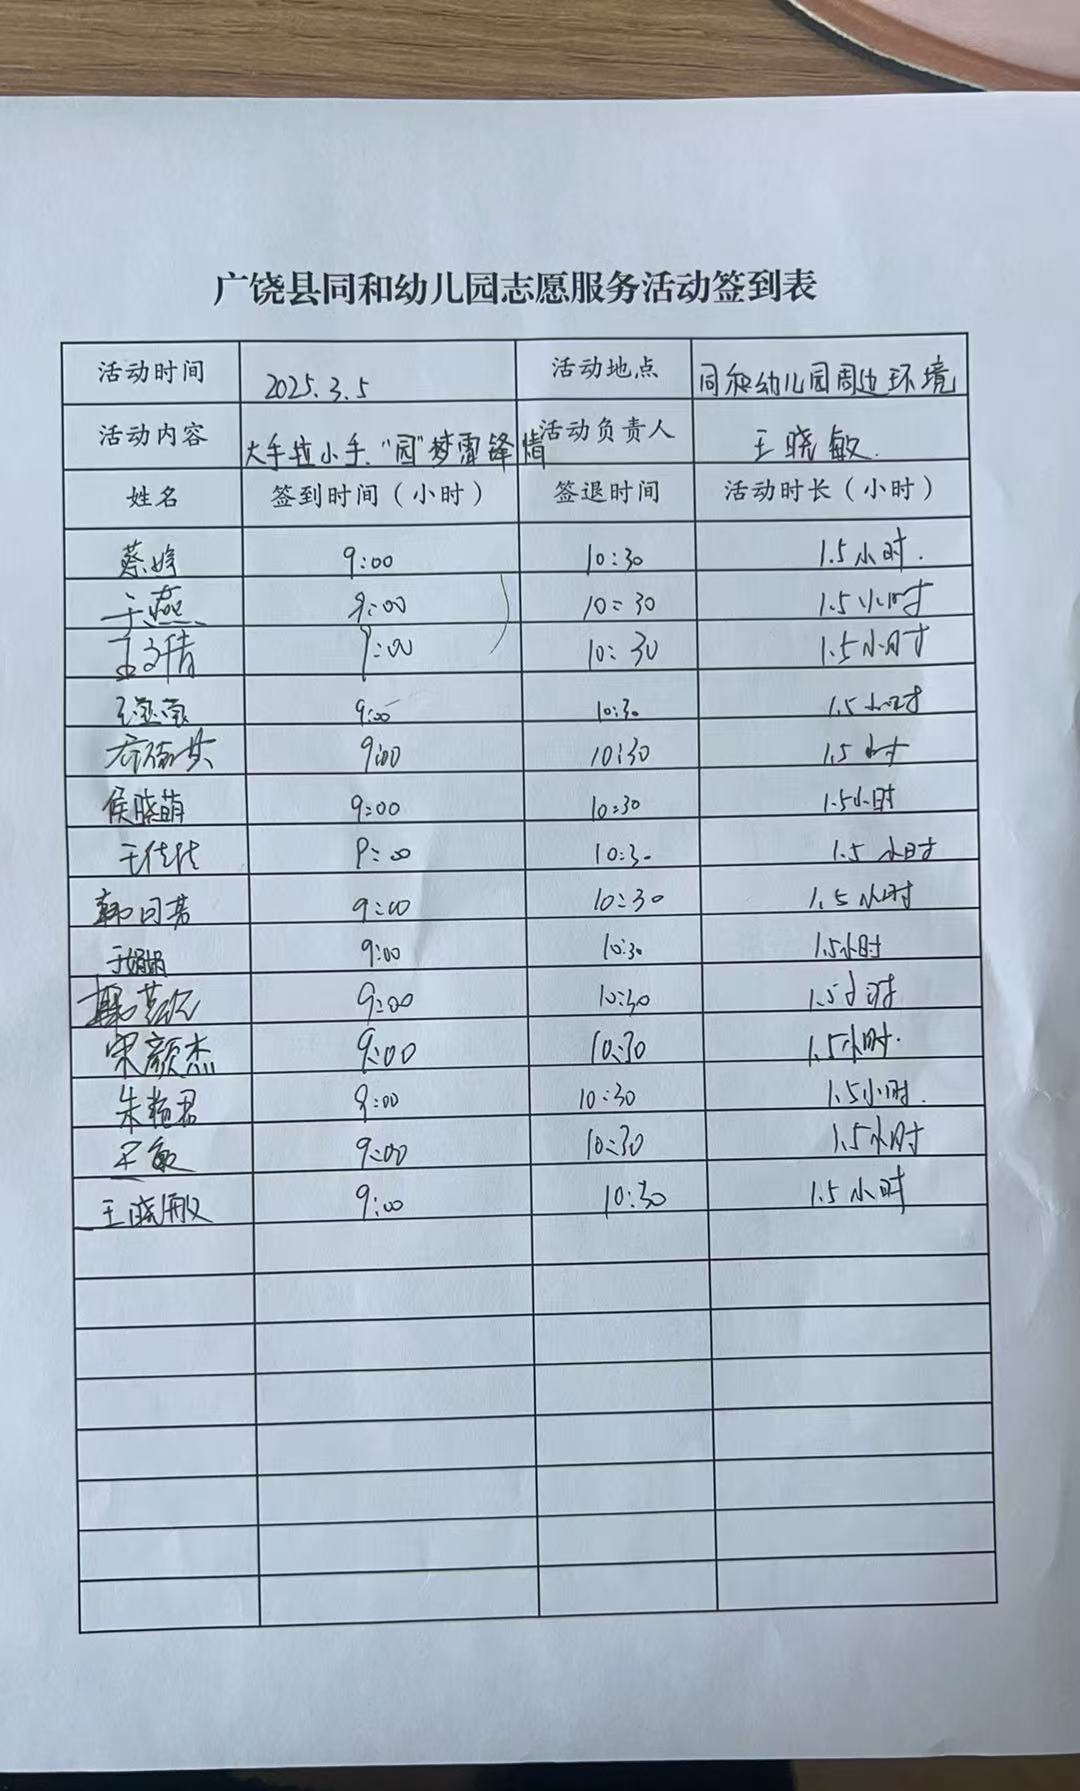 广饶县同和幼儿园志愿服务活动签到表
活动时间 2025.3.5 活动地点 同和幼儿园周边环境
活动内容 大手拉小手."园"梦雷锋情 活动负责人 王晓敏.
姓名 签到时间（小时） 签退时间 活动时长（小时）
蔡 9:00 10:30 1.5小时.
于燕 9:00 10:30 1.5小时
孟子倩 9:00 10:30 1.5小时
9:00 10:30 1.5小时
9:00 10:30 1.5小时
侯晓萌 9:00 10:30 1.5小时
王佳佳 9:00 10:30 1.5小时
韩日芳 9:00 10:30 1.5小时
于娟娟 9:00 10:30 1.5小时
9:00 10:30 1.5小时
宋颜杰 9:00 10:30 1.5小时.
朱艳君 9:00 10:30 1.5小时.
王敏 9:00 10:30 1.5小时
王晓敏 9:00 10:30 1.5小时